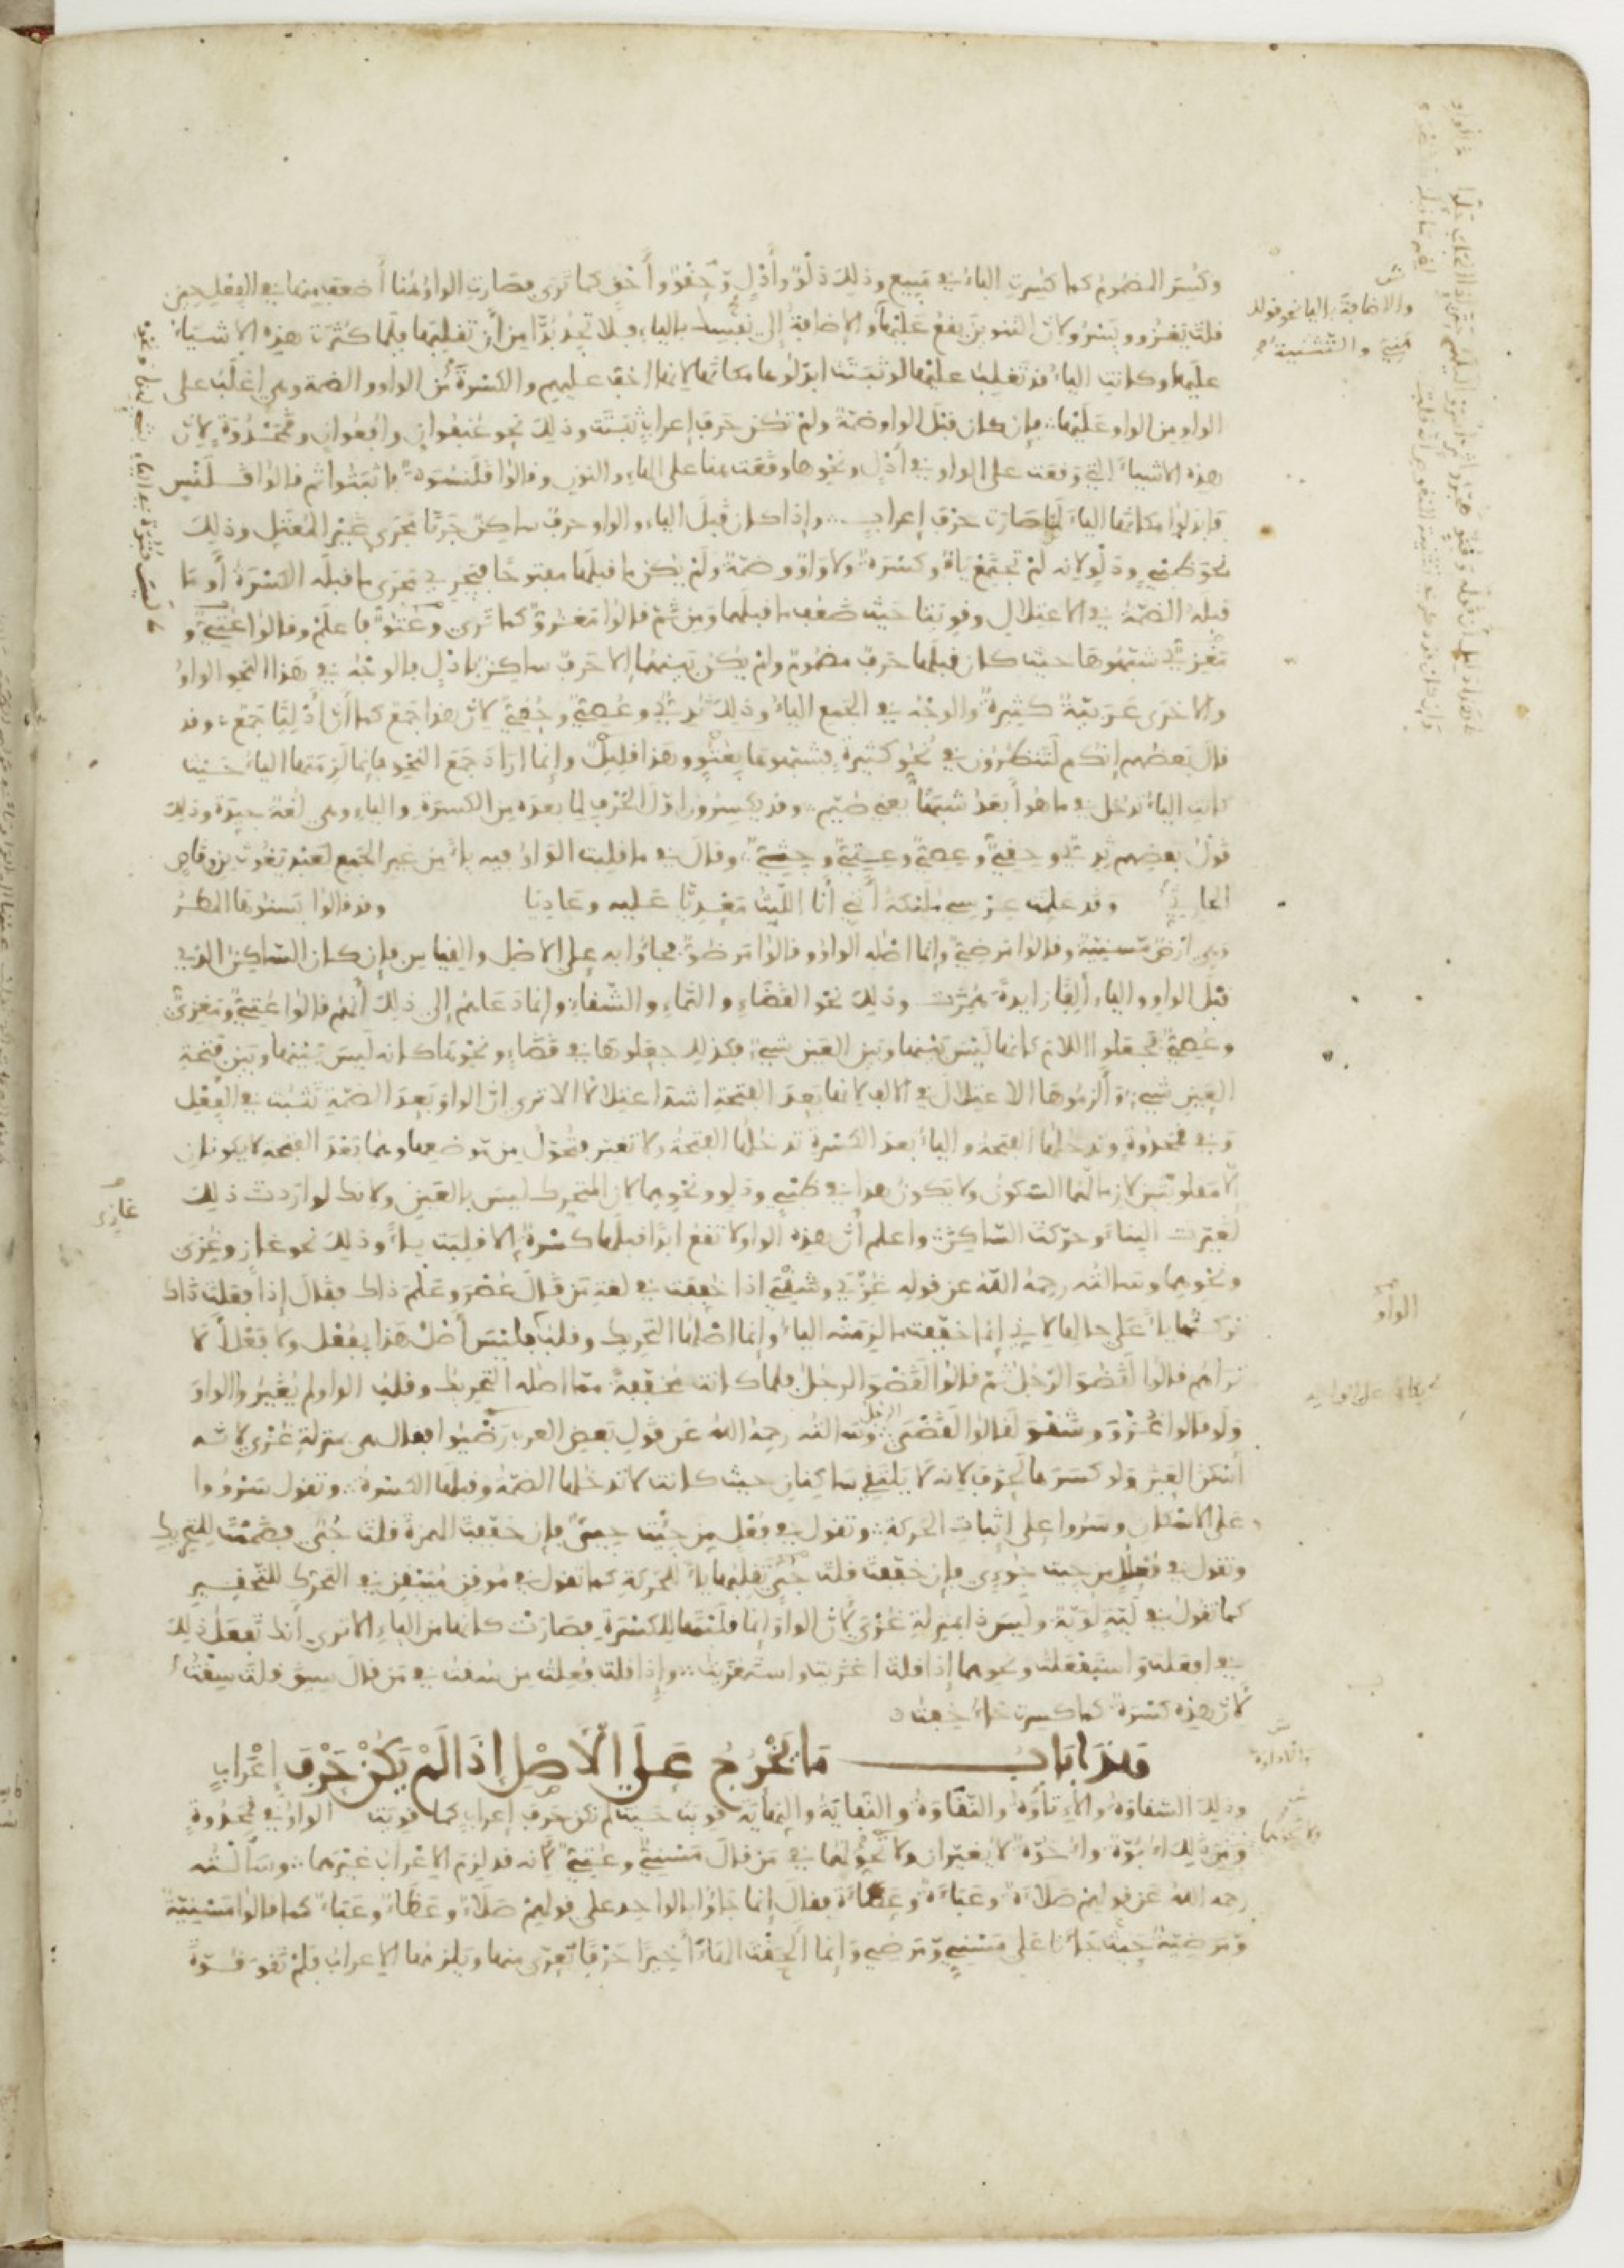 وكُسر المضموم كما كُسرت الياء في مَبيع وذلك دَلْوٌ وأَدْلٍ وحَقْوٌ وأَحْقٍ كما تَرى فصارت الواو هنا أَضعف منها في الفعل حين
قلت يغزو ويسرو لأن التنوين يقع عليها والإضافة إلى نفسك بالياء فلا تجد بُدّا من أن تقلبها فلما كثرت هذه الأشياء
عليها وكانت الياء قد تغلب عليها لو ثبتت أبدلوها مكانها لأنها أخف عليهم والكسرة من الواو والضمة وهي أغلب على
الواو من الواو عليها فإن كان قبل الواو ضمة ولم تكن حرف إعراب ثبتت وذلك نحو عنفوان وأفعوان وقمحدوة لأن
هذه الأشياء التي وقعت على الواو في أدل ونحوها وقعت هنا على الهاء والنون وقالوا قلنسوة فأثبتوا ثم قالوا قلنس
فأبدلوا مكانها الياء لما صارت حرف إعراب وإذا كان قبل الياء والواو حرف ساكن جرتا مجرى غير المعتل وذلك
نحو ظبي ودلو لأنه لم تجتمع ياء وكسرة ولا واو وضمة ولم يكن ما قبلهما مفتوحا فتجري مجرى ما قبله الكسرة أو ما
قبله الضمة في الاعتلال وقويتا حيث ضعف ما قبلهما ومن ثم قالوا مغزو كما ترى وعتو فاعلم وقالوا عتي و
مغزي شبهوها حيث كان قبلها حرف مضموم ولم يكن بينهما إلا حرف ساكن بأدل فالوجه في هذا النحو الواو
والأخرى عربية كثيرة والوجه في الجمع الياء وذلك ثدي وعصي وحقي لأن هذا جمع كما أن أدليا جمع وقد
قال بعضهم إنكم لتنظرون في نحو كثيرة فشبهوها بعتو وهذا قليل وإنما أراد جمع النحو فإنما لزمتها الياء حيث
كانت الياء تدخل في ما هو أبعد شبها يعني صيم وقد يكسرون أول الحرف لما بعده من الكسرة والياء وهي لغة جيدة وذلك
قول بعضهم ثدي وحقي وعصي وعتي وجثي وقال في ما قلبت الواو فيه ياء من غير الجمع لعبد يغوث بن وقاص
الحارثي وقد علمت عرسي مليكة أنني أنا الليث معديا عليه وعاديا وقد قالوا يسنوها المطر
وهي أرض مسنية وقالوا مرضي وإنما أصله الواو وقالوا مرضو فجاؤا به على الأصل والقياس فإن كان الساكن الذي
قبل الواو والياء ألفا زايدة همزت وذلك نحو القضاء والنماء والشقاء وإنما دعاهم إلى ذلك أنهم قالوا عتي ومغزي
وعصي فجعلوا اللام كأنها ليس بينها وبين العين شيء فكذلك جعلوها في قضاء ونحوها كأنه ليس بينها وبين فتحة
العين شيء وألزموها الاعتلال في الألف لأنها بعد الفتحة أشد اعتلالا ألا ترى أن الواو بعد الضمة تثبت في الفعل
وفي قمحدوة وتدخلها الفتحة والياء بعد الكسرة تدخلها الفتحة ولا تغير فتحول من موضعها وهما بعد الفتحة لا يكونان
إلا مقلوبتين لازما لهما السكون ولا يكون هذا في ظبي ودلو ونحوهما لأن المتحرك ليس بالعين ولأنك لو أردت ذلك
لغيرت البناء وحركت الساكن واعلم أن هذه الواو لا تقع أبدا قبلها كسرة إلا قلبت ياء وذلك نحو غاز وغزي
ونحوهما وسألته رحمه الله عن قوله غزي وشقي إذا خففت في لغة من قال عصر وعلم ذاك فقال إذا فعلت ذاك
تركتها ياء على حالها لأني إنما خففت ما لزمته الياء وإنما أصلها التحريك وقلب فليس أصل هذا بفعل ولا فعلا ألا
تراهم قالوا لقضو الرجل ثم قالوا لقضو الرجل فلما كانت مخففة مما أصله التحريك وقلب الواو لم يغير والواو
ولو قالوا غزو وشقو لقالوا لقضي الرجل وسألته رحمه الله عن قول بعض العرب رضيوا فقال هي بمنزلة غزي لأنه
أسكن العين ولو كسرها لحذف لأنه لا يلتقي ساكنان حيث كانت لا تدخلها الضمة وقبلها الكسرة وتقول سرووا
على الإسكان وسروا على إثبات الحركة وتقول في فعل من جئت جيء فإن خففت الهمزة قلت جي فضممت للتحريك
وتقول في فعلل من جئت جوءي فإن خففت قلت جي تقلبها ياء للحركة كما تقول في موقن مييقن في التحرك للتحقير
كما تقول في لية لوية وليس ذا بمنزلة غزي لأن الواو إنما قلبتها للكسرة فصارت كأنها من الياء ألا ترى أنك تفعل ذلك
في افعلت واستفعلت ونحوهما إذا قلت أغزيت واستغزيت وإذا قلت فعلت من سقت في من قال سيق قلت سقت
لأن هذه كسرة كما كسرت خاء خفت
وهذا باب ما يخرج على الأصل إذا لم يكن حرف إعراب
وذلك الشقاوة والإتاوة والنقاوة والنقاية والنهاية قويت حيث لم تكن حرف إعراب كما قويت الواو في قمحدوة
ومن ذلك أبوة وأخوة لا يغيران ولا تحولهما في من قال مسني وعتي لأنه قد لزم الإعراب غيرهما وسألته
رحمه الله عن قولهم صلاءة وعباءة وعظاءة فقال إنما جاؤا بالواحد على قولهم صلاء وعظاء وعباء كما قالوا مسنية
ومرضية حيث جاءتا على مسني ومرضي وإنما ألحقت الهاء أخيرا حرفا تعرى منها ويلزمها الإعراب فلم تقو قوة
والإضافة بالياء نحو قولك
هني والتثنية
الواو
غازي